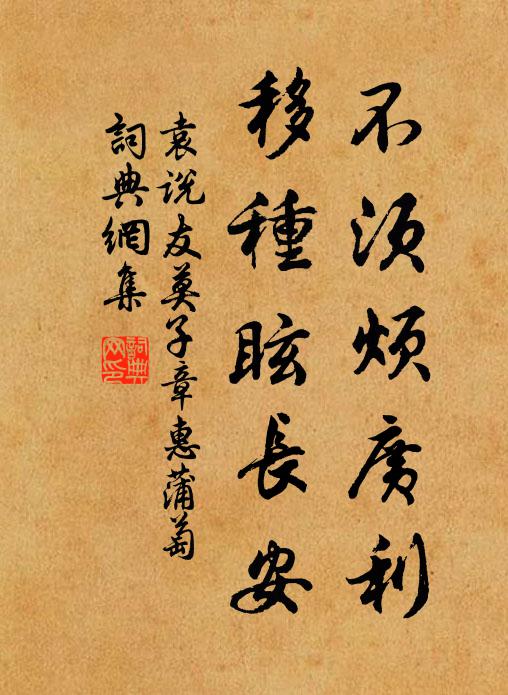 不須煩廣利
移種眩長安
袁说友莫子章惠蒲萄
詞典網集
詞典網印